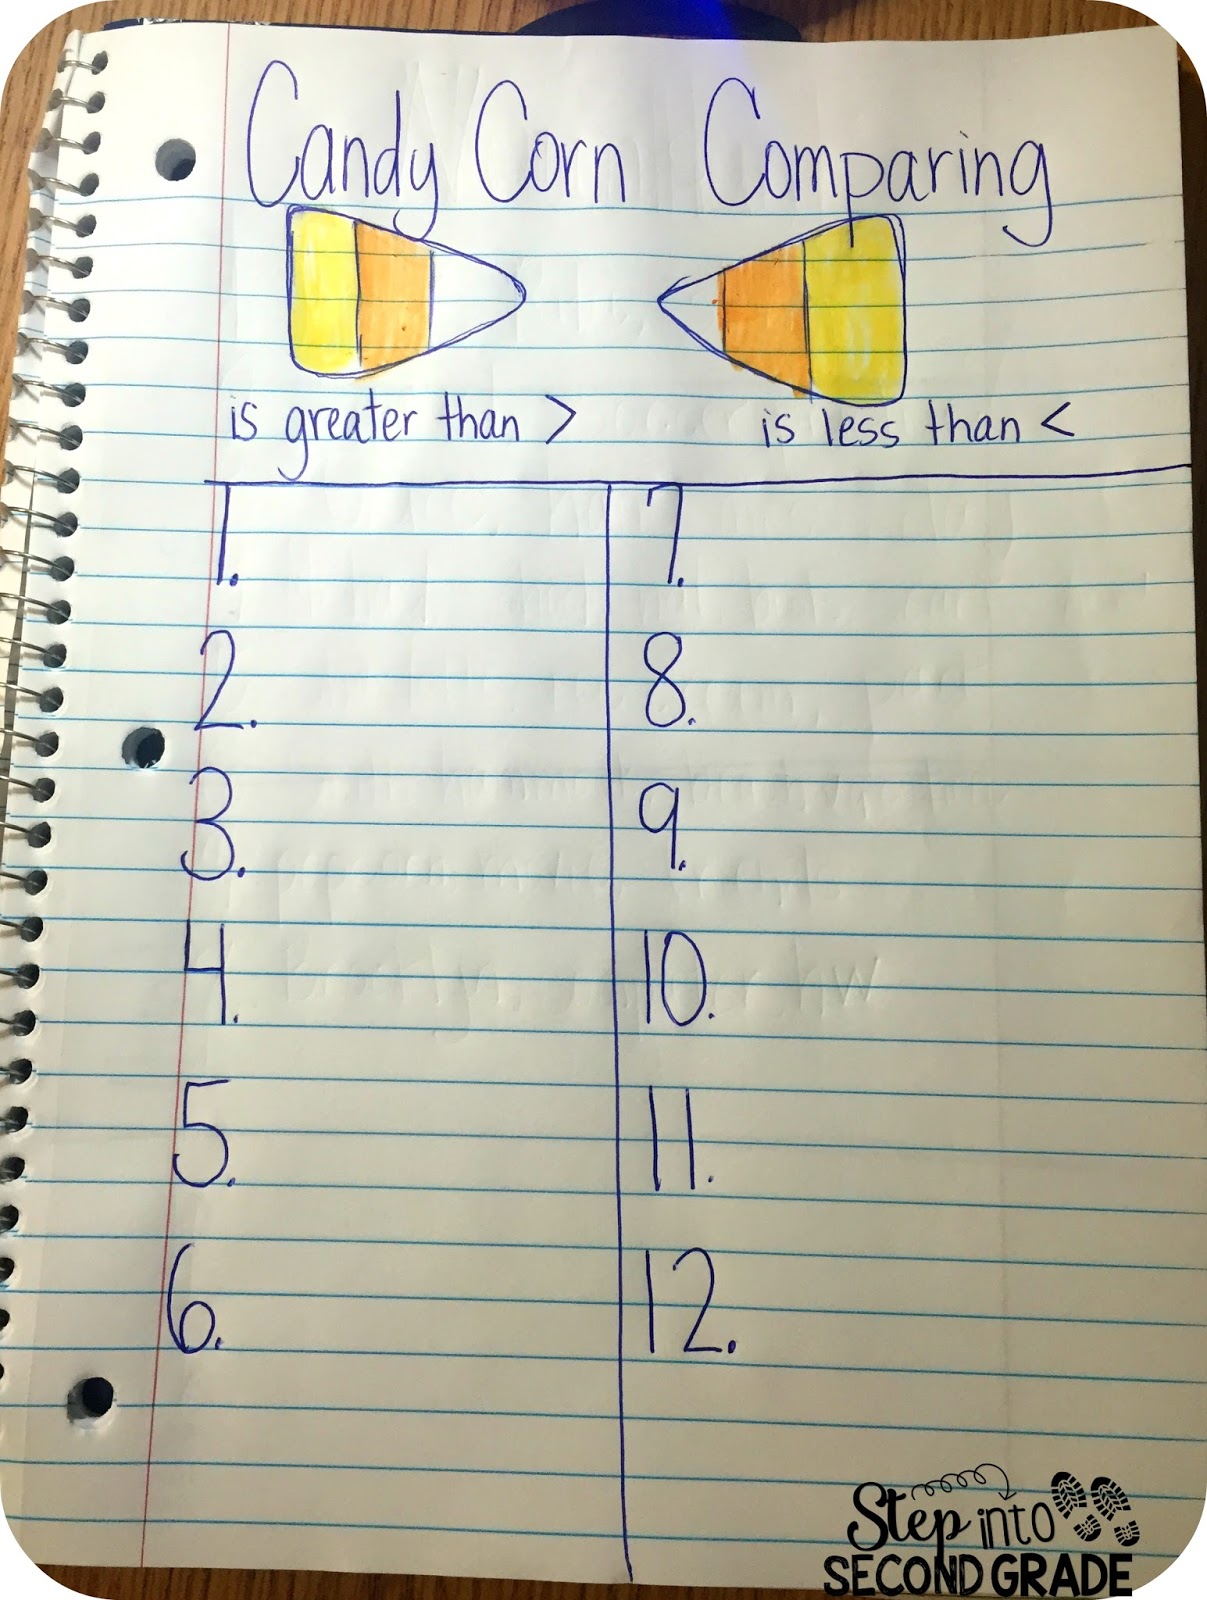 Candy Corn Comparing
is greater than >
is less than <
1.
2.
3.
4.
5.
6.
7.
8.
9.
10.
11.
12.
Step into
SECOND GRADE